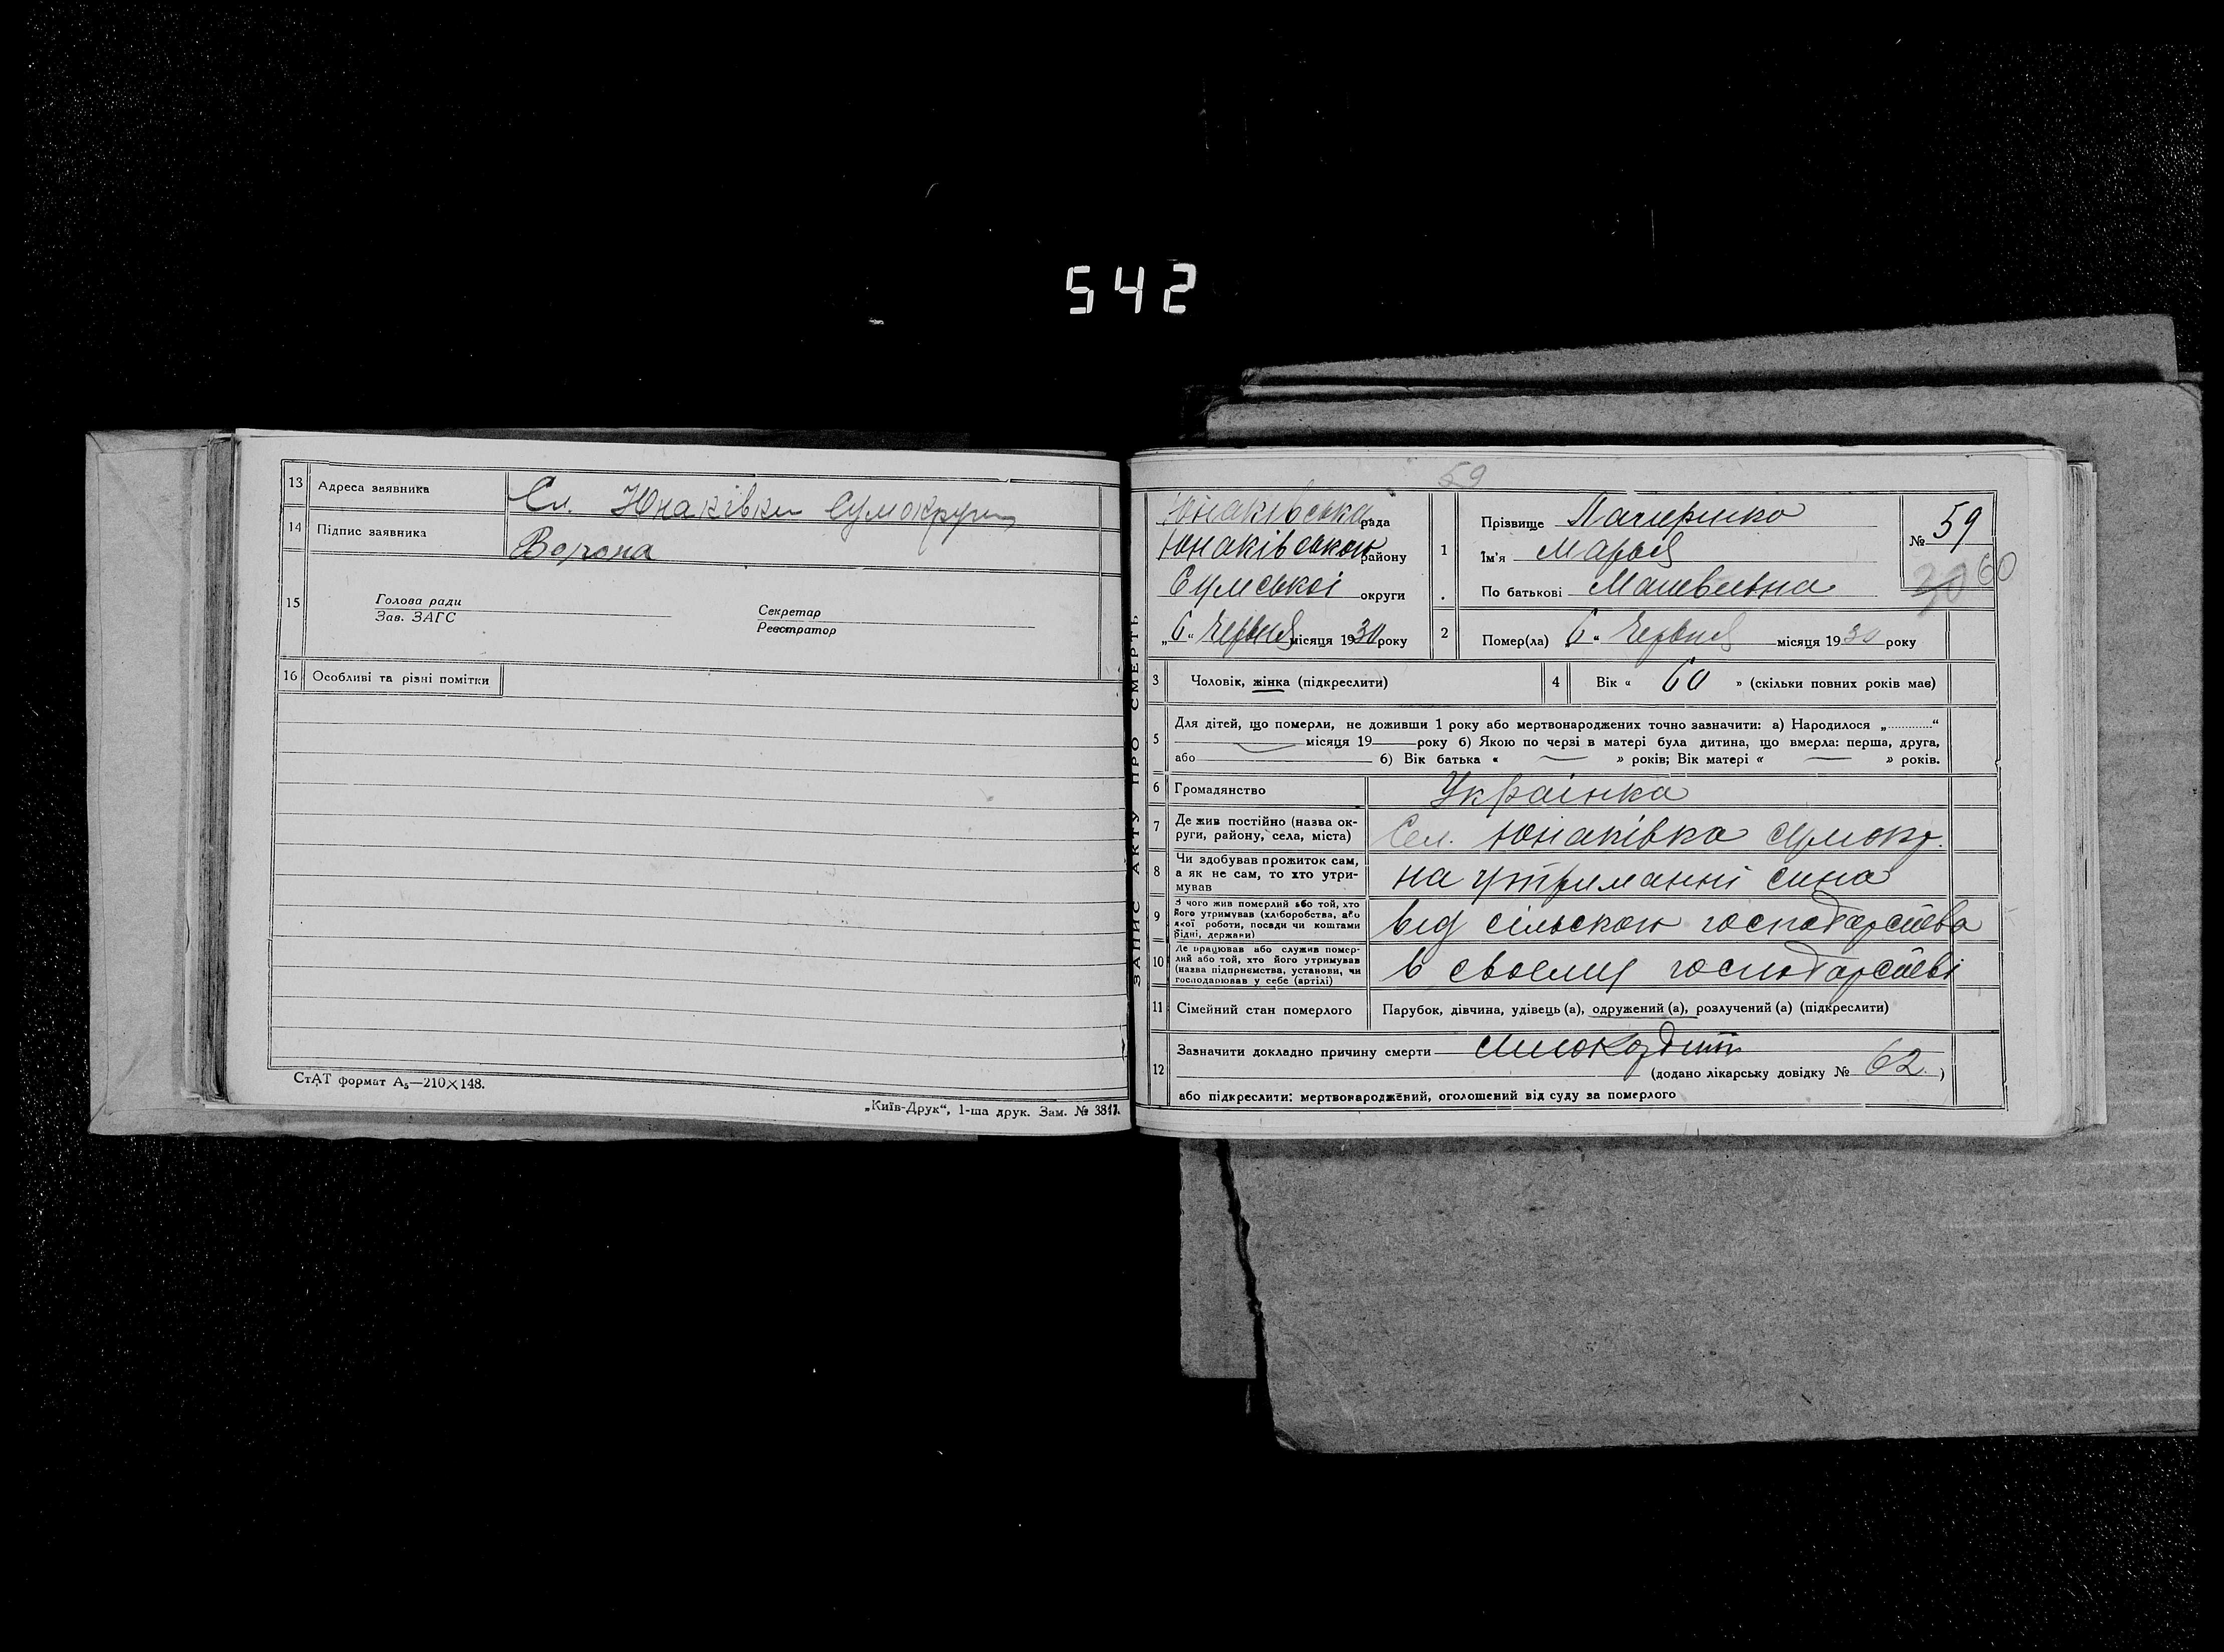 542
13 Адреса заявника Сл. Юнаківки Сумокруги
14 Підпис заявника Ворона
15 Голова ради
Зав. ЗАГС
Секретар
Реєстратор
16 Особливі та різні помітки
СтАТ формат А₅—210×148.
„Київ-Друк“, 1-ша друк. Зам. № 3817.
ЗАПИС АКТУ ПРО СМЕРТЬ
59
Юнаківська рада
Юнаківського району
Сумської округи
„6“ Червня місяця 1930 року
1 Прізвище
Ім'я Марья
По батькові
№ 59
60
2 Помер(ла) „6“ Червня місяця 1930 року
3 Чоловік, жінка (підкреслити)
4 Вік « 60 » (скільки повних років має)
5 Для дітей, що померли, не доживши 1 року або мертвонароджених точно зазначити: а) Народилося „............“
місяця 19 року б) Якою по черзі в матері була дитина, що вмерла: перша, друга,
або б) Вік батька « — » років; Вік матері « — » років.
6 Громадянство Українка
7 Де жив постійно (назва ок-
руги, району, села, міста) Сел. Юнаківка Сумокр.
8 Чи здобував прожиток сам,
а як не сам, то хто утри-
мував на утриманні сина
9 З чого жив померлий або той, хто
його утримував (хліборобства, або
якої роботи, посади чи коштами
рідні, держави) від сільского господарства
10 Де працював або служив помер-
лий або той, хто його утримував
(назва підприємства, установи, чи
господарював у себе (артілі) в своему господарстві
11 Сімейний стан померлого Парубок, дівчина, удівець (а), одружений (а), розлучений (а) (підкреслити)
12 Зазначити докладно причину смерти Миокардит
(додано лікарську довідку № 62.)
або підкреслити: мертвонароджений, оголошений від суду за померлого